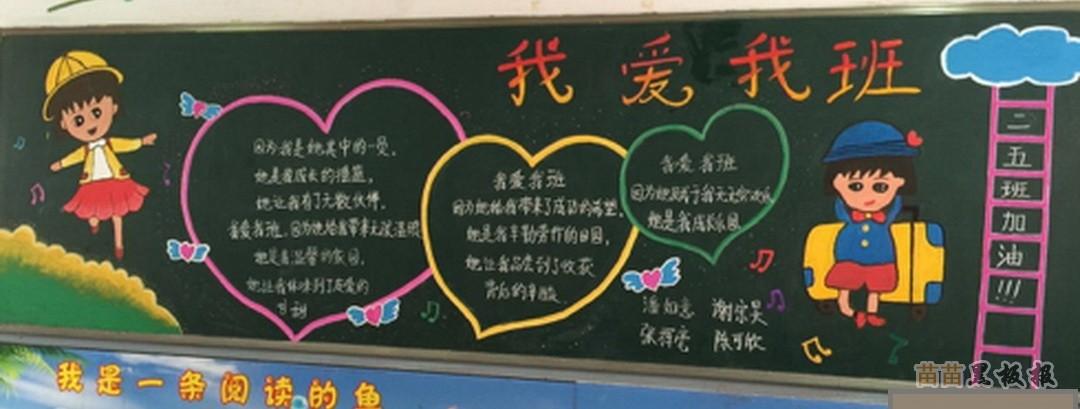 我爱我班
因为我是她其中的一员。
她是我成长的摇篮,
她让我有了无数伙伴。
我爱我班。因为她给我带来无
她是
温馨的家园。
她让我体味到了
我爱我班
因为她给我带来了成功的希望。
她是我辛勤劳作的田园,
她让我品尝到了收获
背后的辛酸
我爱我班
因为她
于我无
她是我成长乐园
二
五
班
加
油
!!!
潘如意
张
陈可欣
我是一条阅读的鱼
苗苗黑板报